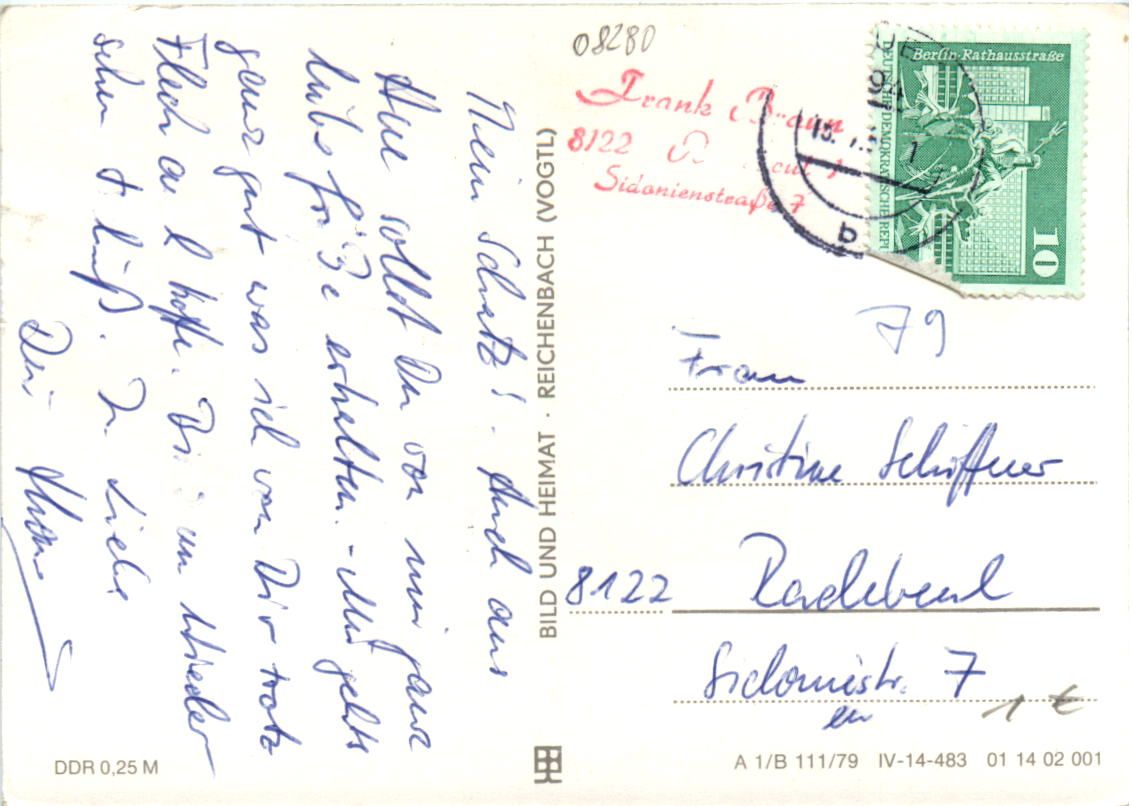 Mein Schatz! Auch aus
sollst Du von mir ganz
liebe Grüße erhalten. - Mir gehts
ganz gut was ich von Dir trotz
auch hoffe. Bis zum Wieder
sehen + Kuß. In Liebe
Dein
BILD UND HEIMAT · REICHENBACH (VOGTL)
08280
Frank Braun
8122
Sidonienstraße 7
Berlin-Rathausstraße
DEUTSCHE DEMOKRATISCHE REPUBLIK
10
94
15. 7.
1
b
79
Frau
Christine Schiffner
8122 Radebeul
Sidonistr. 7
en
1 €
DDR 0,25 M
A 1/B 111/79 IV-14-483 01 14 02 001